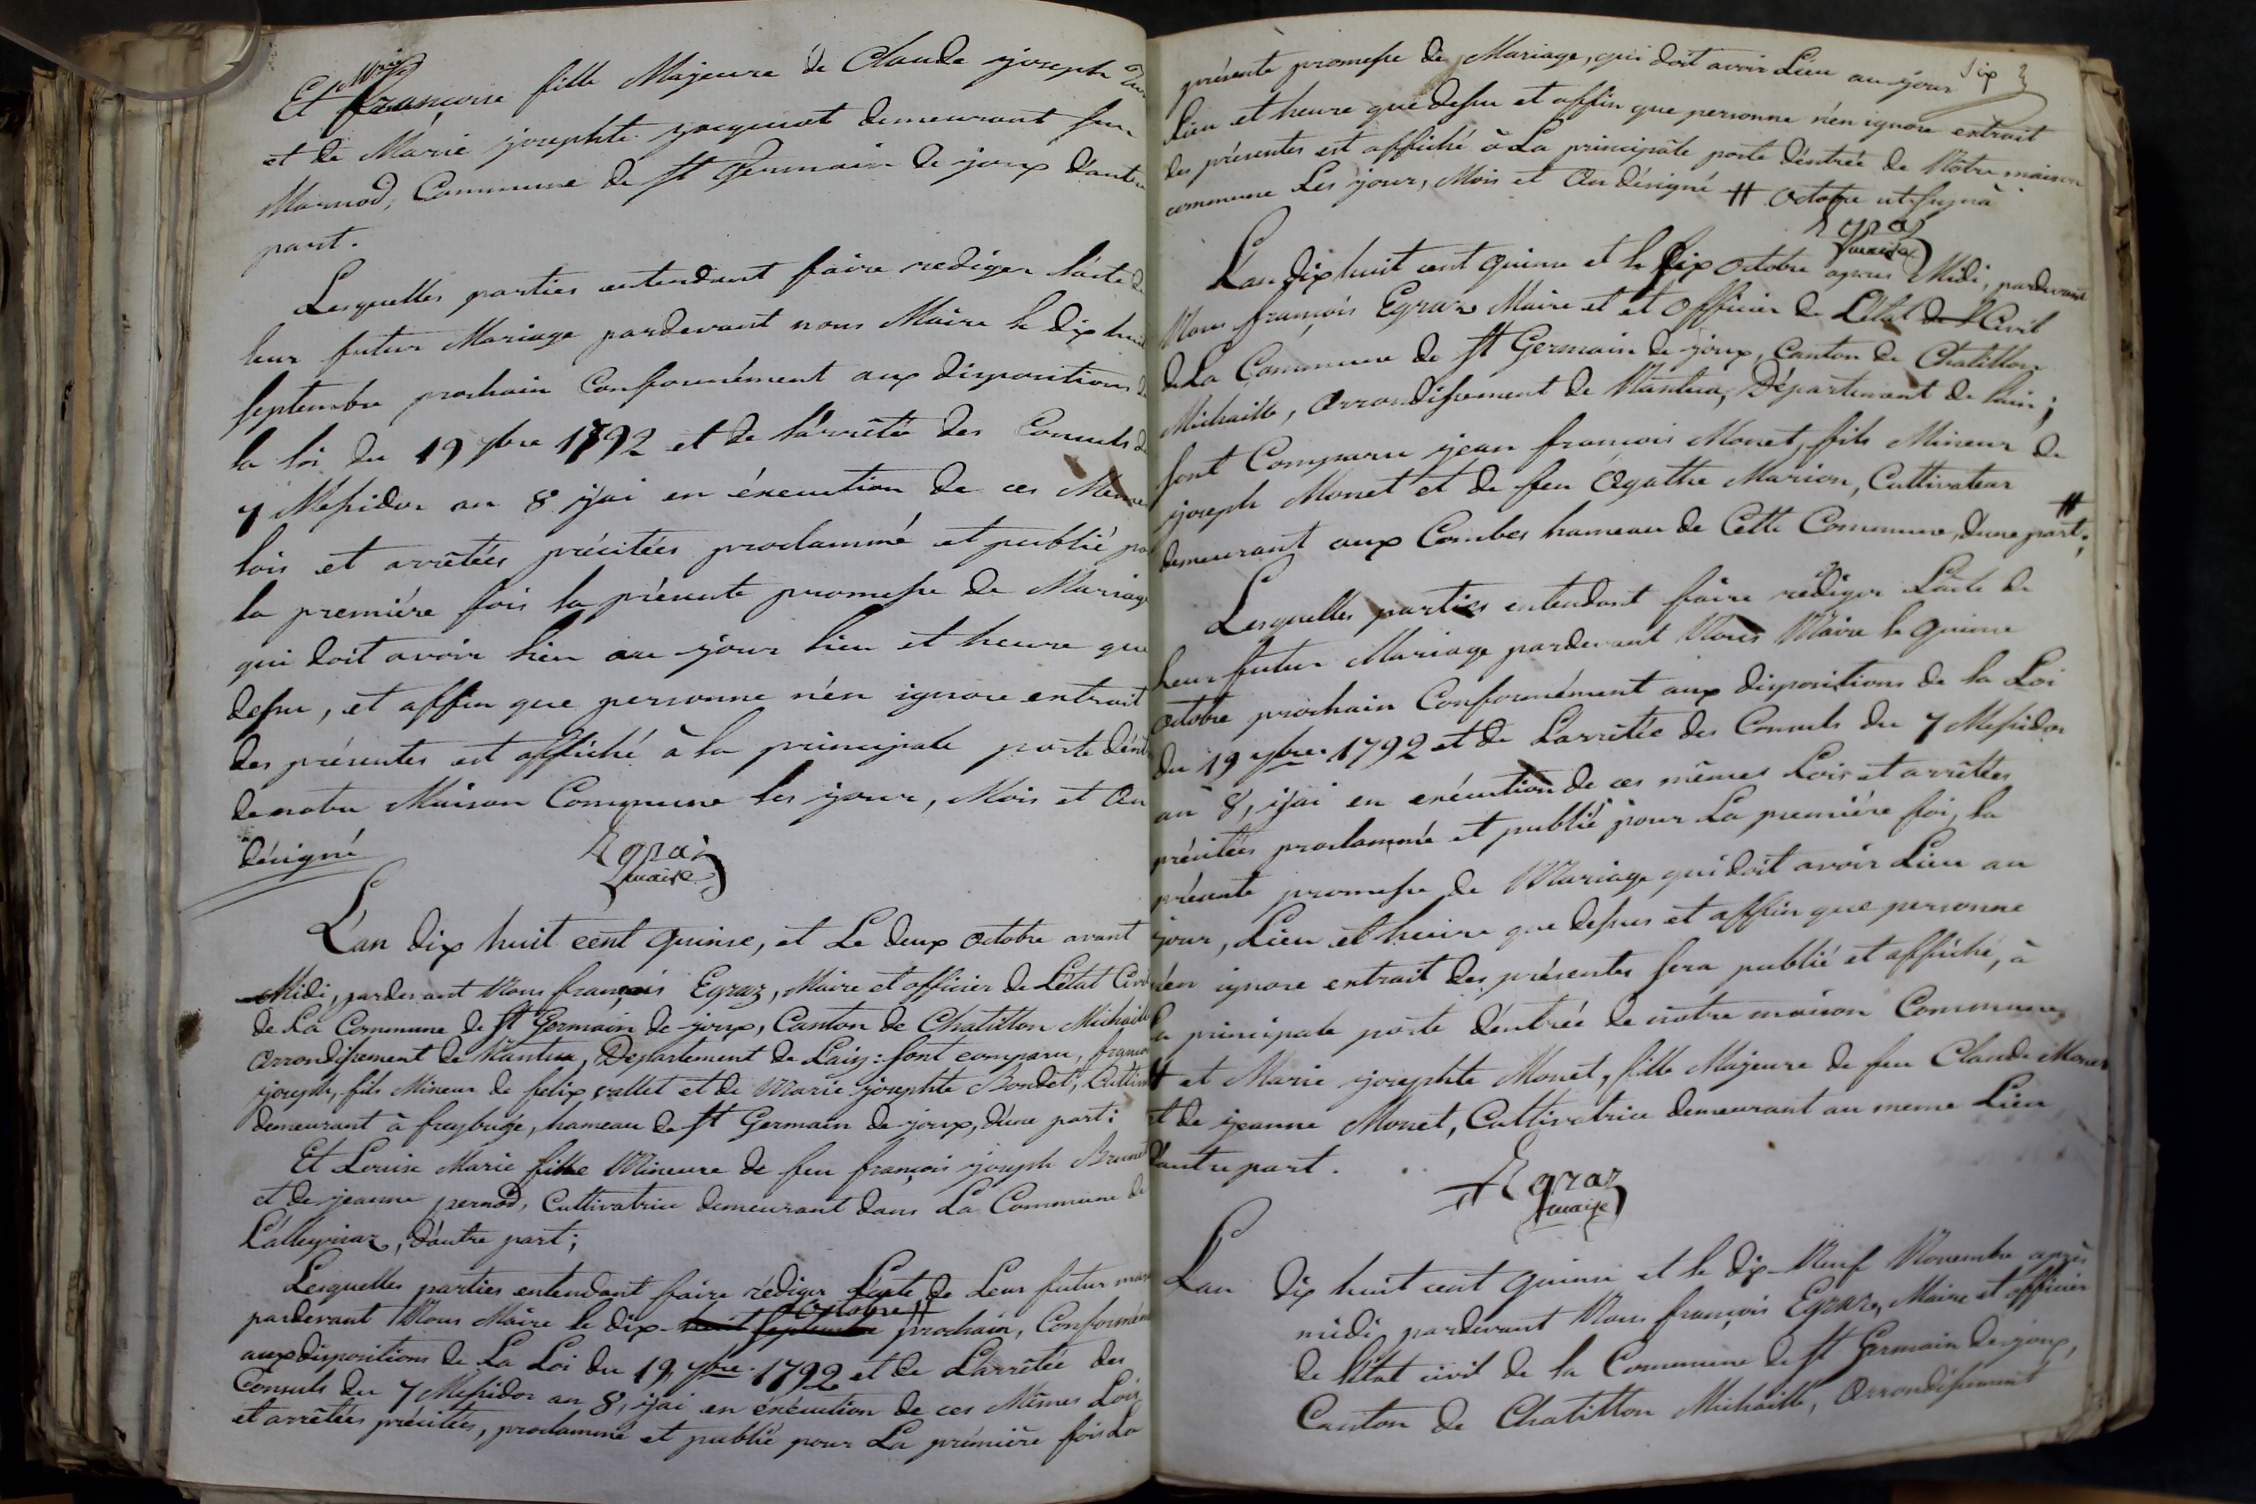 Et Marie françoise fille Majeure de Claude yoseph
et de Marie yosephte yacquenot demeurant sur
Marnod, Commune de St Germain de joux d'autre
part.
Lesquelles parties entendant faire rediger l'acte de
leur futur Mariage pardevant nous Maire le dix huit
septembre prochain Conformément aux dispositions de
la loi du 19 7bre 1792 et de l'arrêté des Consuls du
7 Messidor an 8 j'ai en éxecution de ces Mêmes
lois et arrêtées précitées proclammé et publié pour
la premiére fois la présente promesse de Mariage
qui doit avoir lieu au jour lieu et heure que
dessu, et affin que personne n'en ignore extrait
des présentes est affiché à la principale porte d'entrée
de notre Maison Commune les jour, Mois et An
désigné
Egraz
maire
L'an dix huit cent quinse, et Le deux octobre avant
Midi, pardevant Nous françois Egraz, Maire et officier de L'état Civil
de La Commune de St Germain de joux, Canton de Chatillon Michaille
Arrondissement de Nantua, Departement de Lain : sont comparu, françois
joseph, fils Mineur de felix vallet et de Marie josephte Bondet,
demeurant à freybuge, hameau de St Germain de joux, d'une part :
Et Louise Marie fille Mineure de feu françois joseph Brunet
et de jeanne pernod, Cultivatrice demeurant dans La Commune de
Lalleyriaz, d'autre part ;
Lesquelles parties entendant faire rédiger L'acte de Leur futur mariage
pardevant Nous Maire le dix huit septembre octobre prochain, Conformément
aux dispositions de La Loi du 19, 7bre 1792 et de L'arrêtée des
Consuls du 7 Messidor an 8, j'ai en éxécution de ces Mêmes Lois
et arrêtées précitées, proclammé et publié pour La première fois La
Six
présente promesse de Mariage, qui doit avoir Lieu au jour
lieu et heure que dessu et affin que personne n'en ignore extrait
des présentes est affiché à La principale porte d'entrée de Nôtre maison
commune Les jour, Mois et An désigné # octobre
Egraz
maire
L'an dix huit cent quinse et le six octobre apres Midi, pardevant
Nous françois Egraz Maire et et officier de L'Etat de l' Civil
de La Commune de St Germain de joux, Canton de Chatillon
Michaille, Arrondissement de Nantua, Département de lain ;
sont Comparu jean francois Monet, fils Mineur de
joseph Monet et de feu Agathe Marion, Cultivateur
demeurant aux Combes hameau de Cette Commune, d'une part ; #
Lesquelles parties entendant faire rédiger L'acte de
leur futur Mariage pardevant Nous Maire le quinse
octobre prochain Conformément aux dispositions de la Loi
du 19 7bre 1792 et de L'arrêtée des Consuls du 7 Messidor
an 8, j'ai en exécution de ces mêmes Lois et arrêtées
précitées proclammé et publié pour La premiére fois, la
présente promesse de Mariage qui doit avoir Lieu au
jour, Lieu et heure que dessus et affin que personne
n'en ignore extrait des présentes sera publié et affiché, à
la principale porte d'entrée de nôtre maison Commune
# et Marie josephte Monet, fille Majeure de feu Claude Monet
et de jeanne Monet, Cultivatrice demeurant au meme Lieu
d'autre part.
Egraz
maire
L'an dix huit cent quinse et le dix-Neuf Novembre après
midi pardevant Nous françois Egraz, Maire et officier
de l'état civil de la Commune de St Germain de joux,
Canton de Chatillon Michaille, Arrondissement